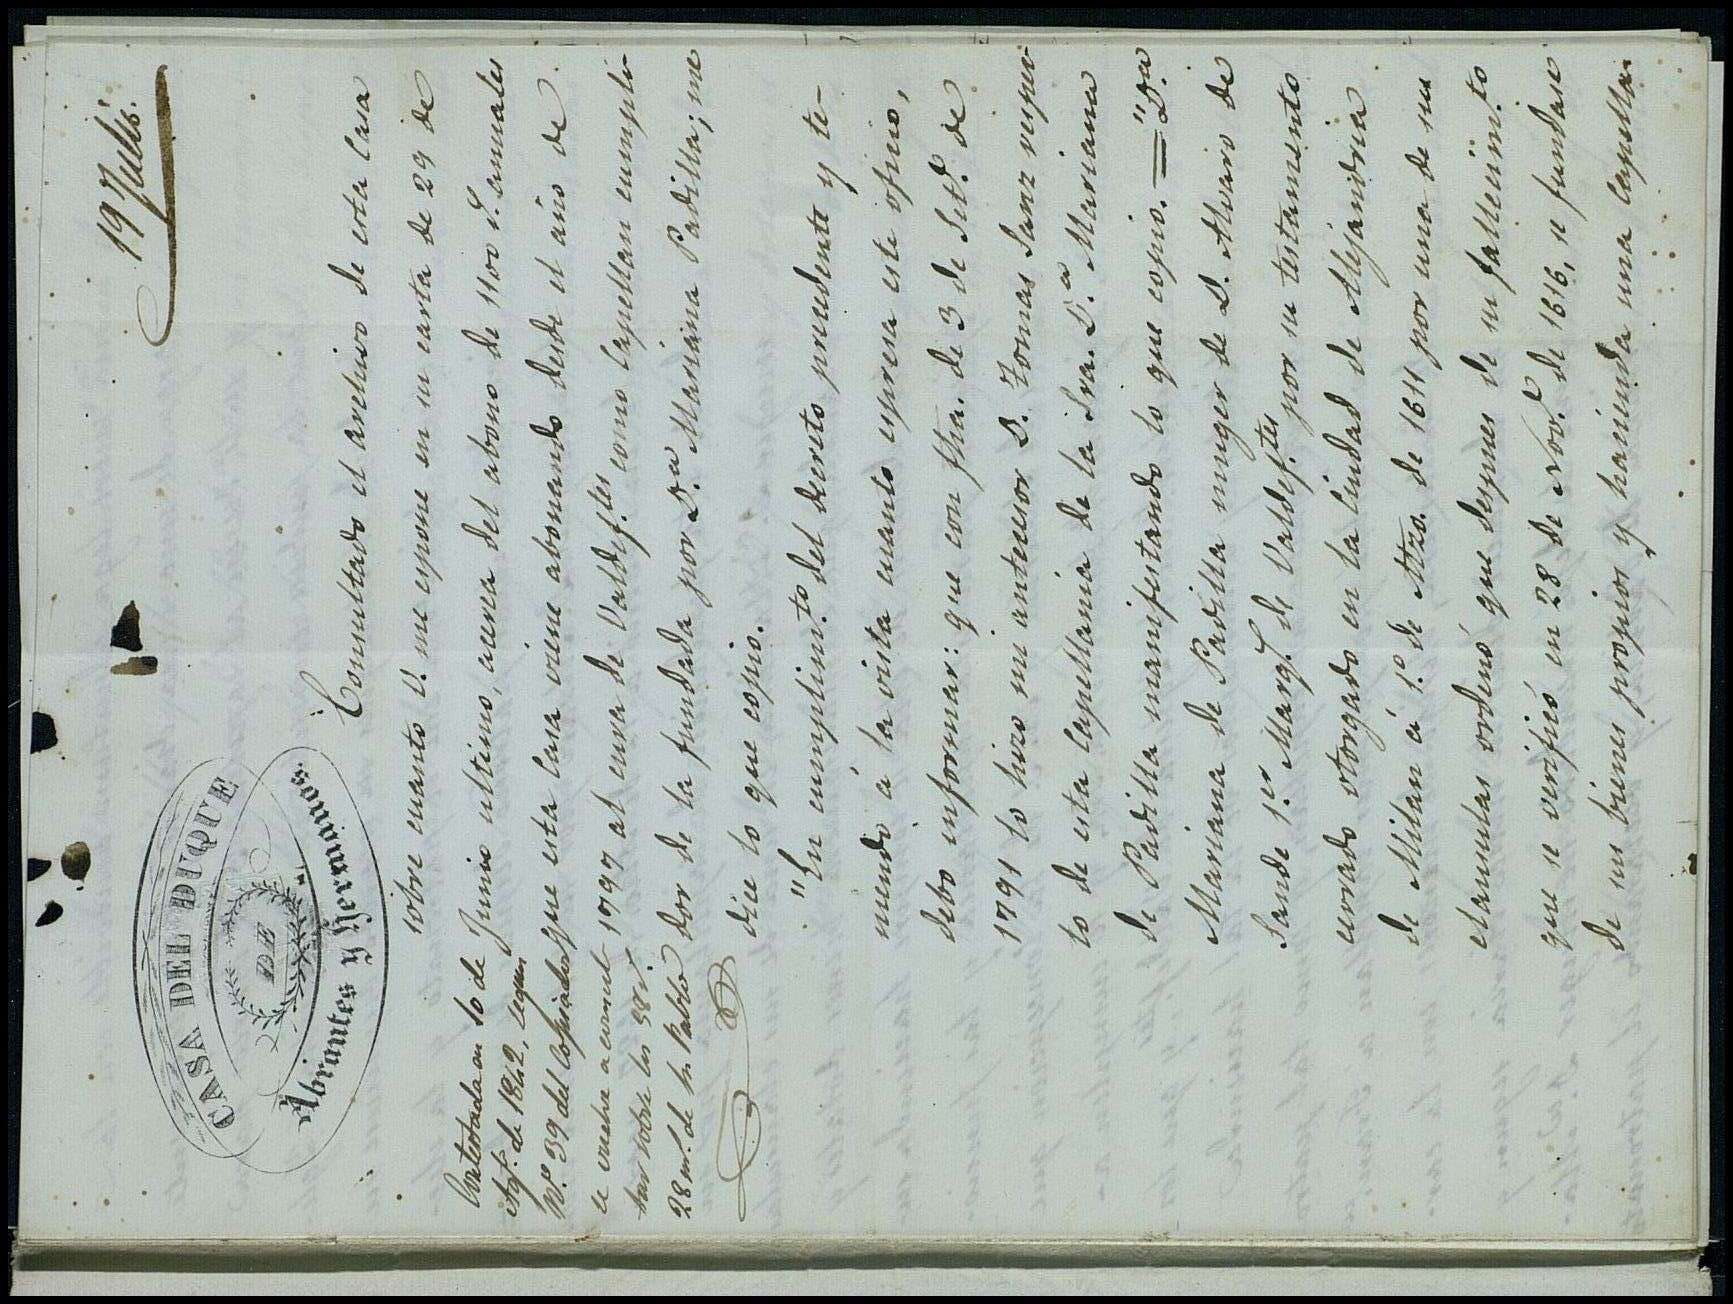 19 Julio.
CASA DEL DUQUE
DE
Abrantes y Hermanos.
Consultado el archivo de esta Casa
sobre cuanto V. me espone en su carta de 29 de
Junio ultimo, acerca del abono de 1100 r.s anuales
que esta Casa viene abonando desde el año de
1797 al cura de Valdef.tes como Capellan cumpli-
dor de la fundada por D.a Mariana Padilla; me
dice lo que copio.
"En cumplim.to del decreto precedente y te-
niendo á la vista cuanto espresa este oficio,
debo informar: que con fha. de 3 de Set.e de
1791 lo hizo mi antecesor D. Tomas Sanz respec-
to de esta Capellania de la Sra. D.a Mariana
de Padilla manifestando lo que copio. = "D.a
Mariana de Padilla muger de D. Alvaro de
Sande 1.er Marq.s de Valdef.tes por su testamento
cerrado otorgado en la Ciudad de Alejandria
de Milan á 1.o de Mzo. de 1611 por una de sus
clausulas ordenó que despues de su fallecim.to
que se verificó en 28 de Nov.e de 1616, se fundase
de sus bienes propios y hacienda una Capellan
Contestada en 10 de
Ag.to de 1842, segun
N.o 39 del Copiador
se vuelve a consul-
tar sobre los 58 r.s
28 m.s de Sn Pablo